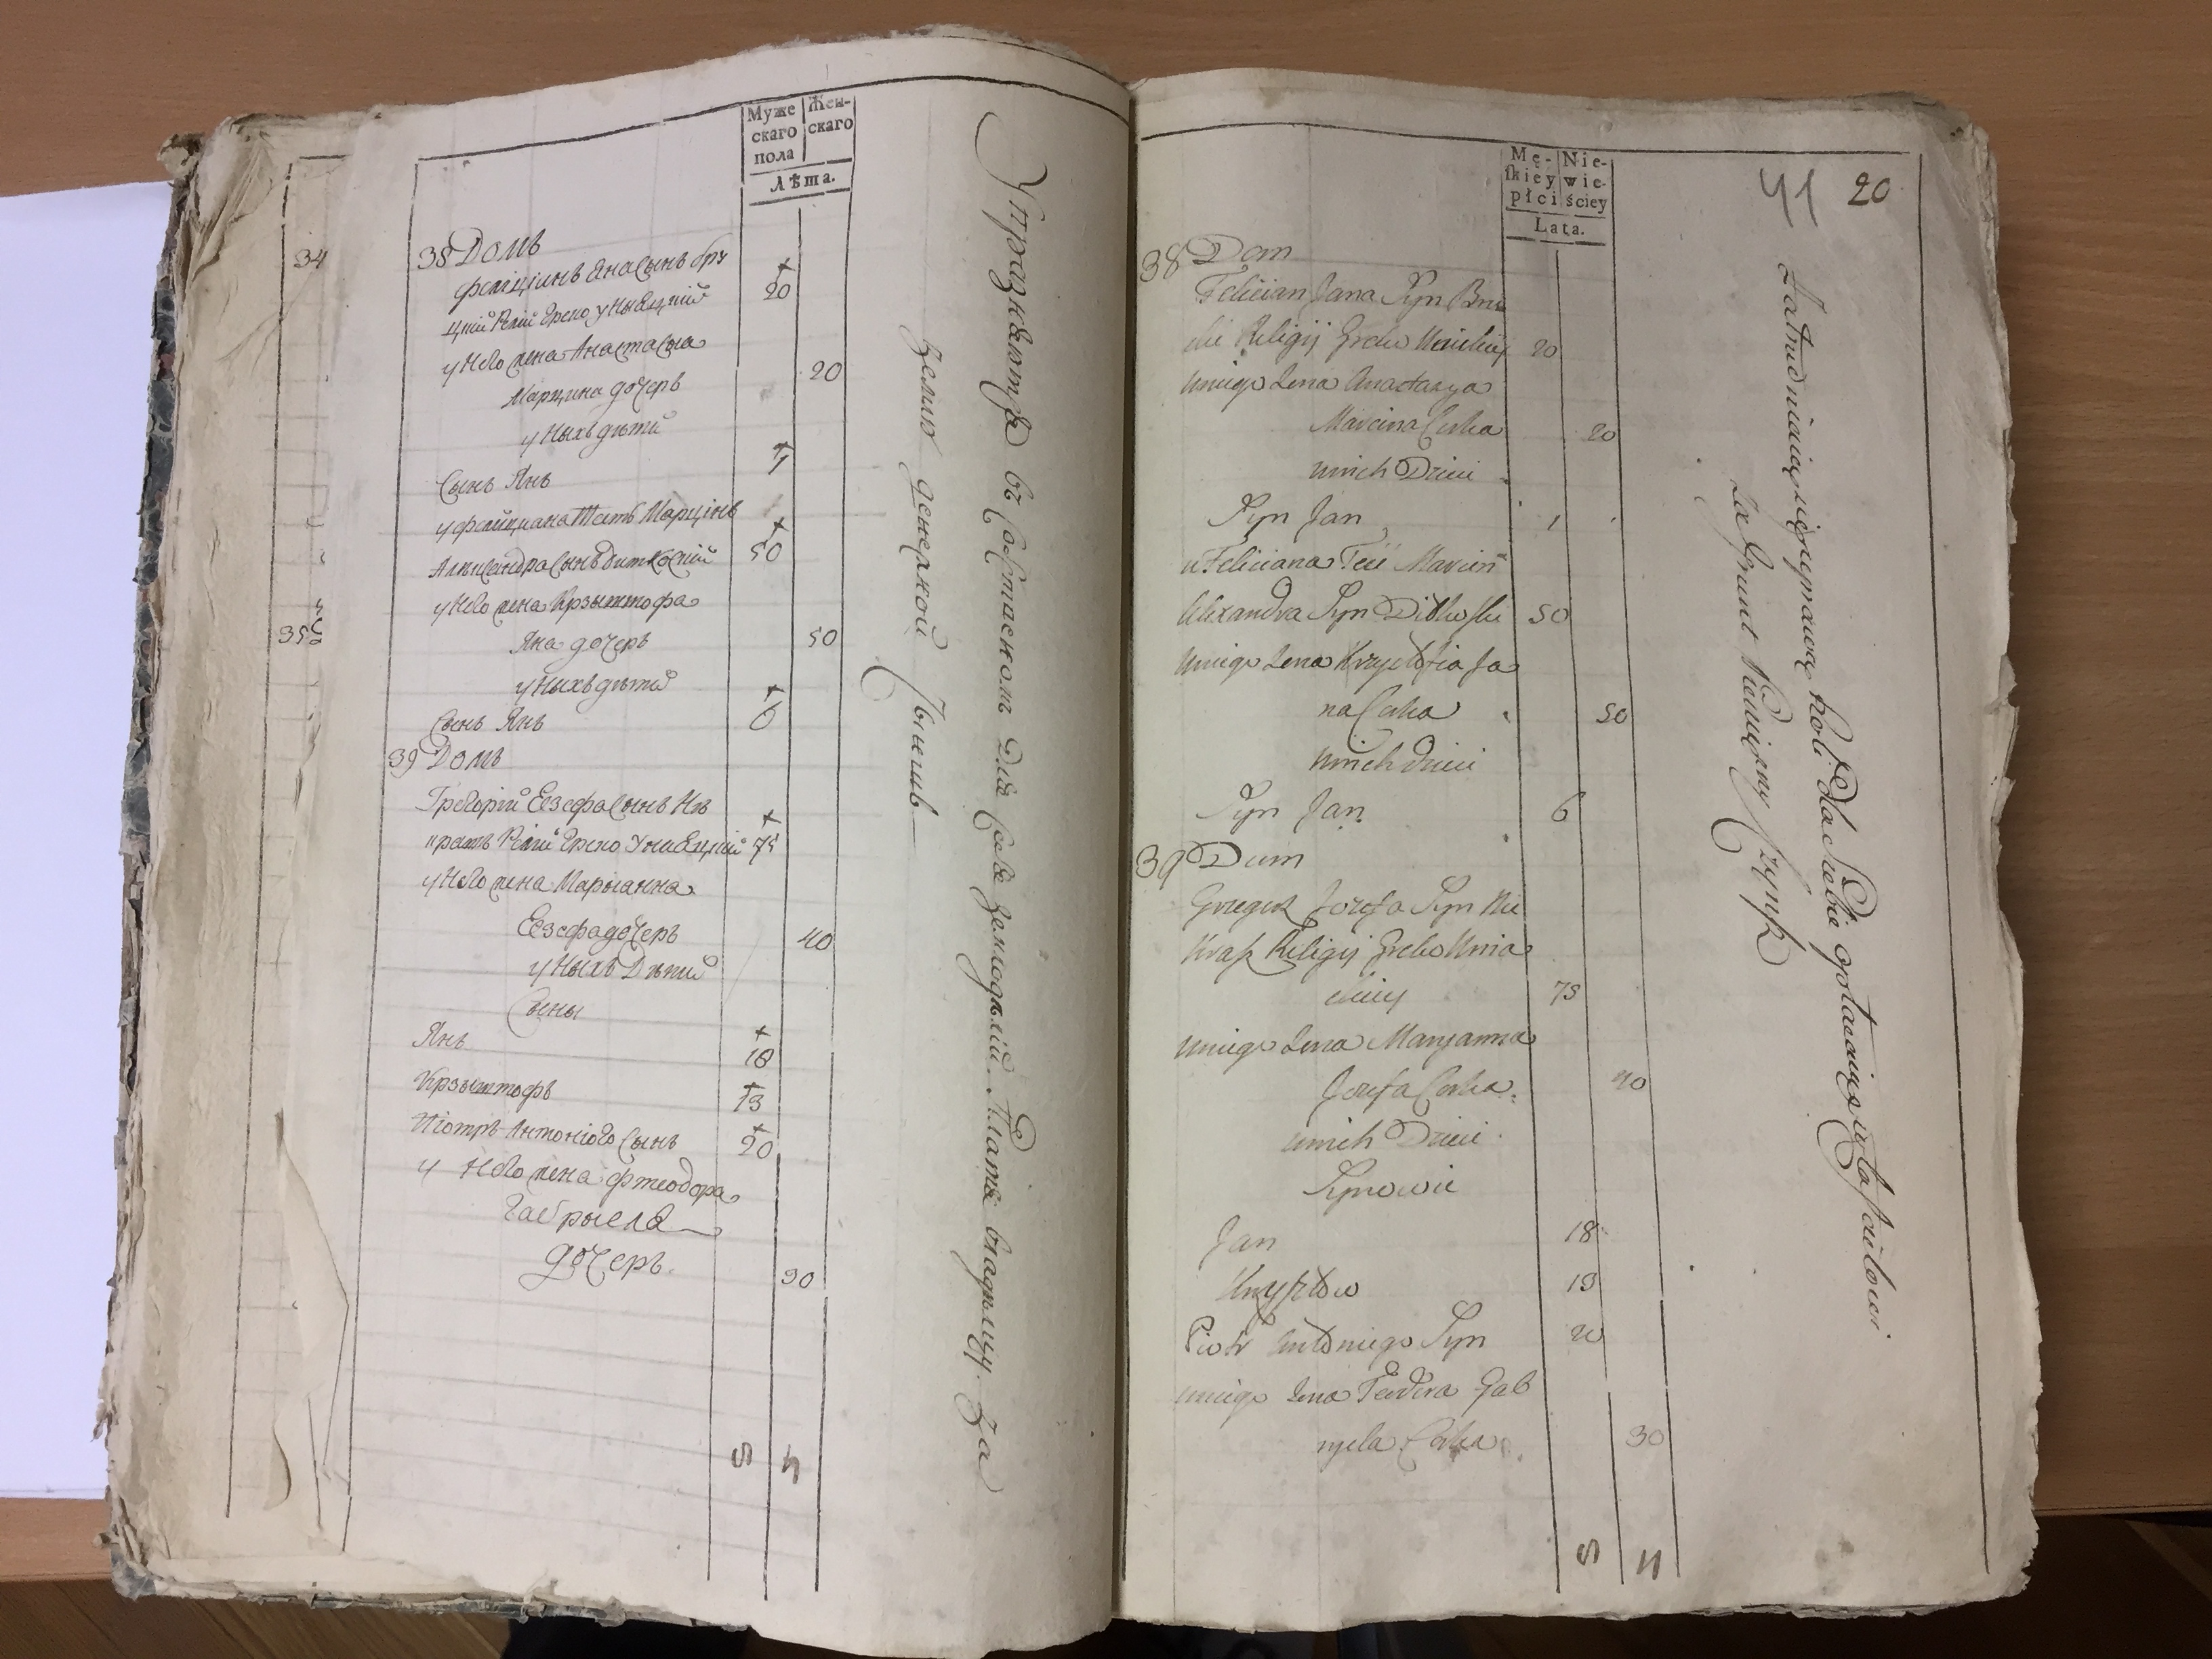 34
35
Муже
скаго
пола
Жен-
скаго
Лѣта.
38 Домъ
Фелиціанъ Яна Сынъ Бру
цкій Релій Греко Унѣяцкій 20
у Него жена Анастасыа
Марцина дочерь 20
у Ныхъ дѣти
Сынъ Янъ 1
у Фелициана Тесть Марцінъ
Александра Сынъ Дитковскій 50
у Него жена Крзыштофа
Яна дочерь 50
у Ныхъ дѣти
Сынъ Янъ 6
39 Домъ
Грегорій Езефа Сынъ Не
крашъ Релій Греко Униѣцкій 75
у Него жена Марыанна
Езефа дочерь 40
у Ныхъ Дѣти
Сыны
Янъ 18
Крзыштофъ 13
Піотръ Антоніого Сынъ 20
у Него жена Фтеодора
Габрыеля
дочерь 30
5 4
Упражняются въ собственомъ для себя земледѣліи. Платя владѣльцу за
землю денежной Чыншъ
41 20
Mę-
skiey
płci
Nie-
wie-
ściey
Lata.
38 Dom
Felician Jana Syn Bru
cki Religij Greko Unickiey 20
u niego żena Anastazya
Marcina Corka 20
u nich Dzieci
Syn Jan 1
u Feliciana Teść Marcin
Alexandra Syn Ditkoski 50
u niego żena Krzysztofia Ja
na Corka 50
u nich dzieci
Syn Jan 6
39 Dum
Grzegorz Jozefa Syn Nie
krasz Religij Greko Unia
ckiey 75
u niego żena Maryanna
Jozefa Corka 40
u nich Dzieci
Synowie
Jan 18
Krzysztow 13
Piotr Antoniego Syn 20
u niego żena Teodora Gab
ryela Corka 30
5 4
Zatrudniaią się uprawą Roli dla Siebie opłacaiąc Właścicielowi
za Grunt Pieniężny Czynsz